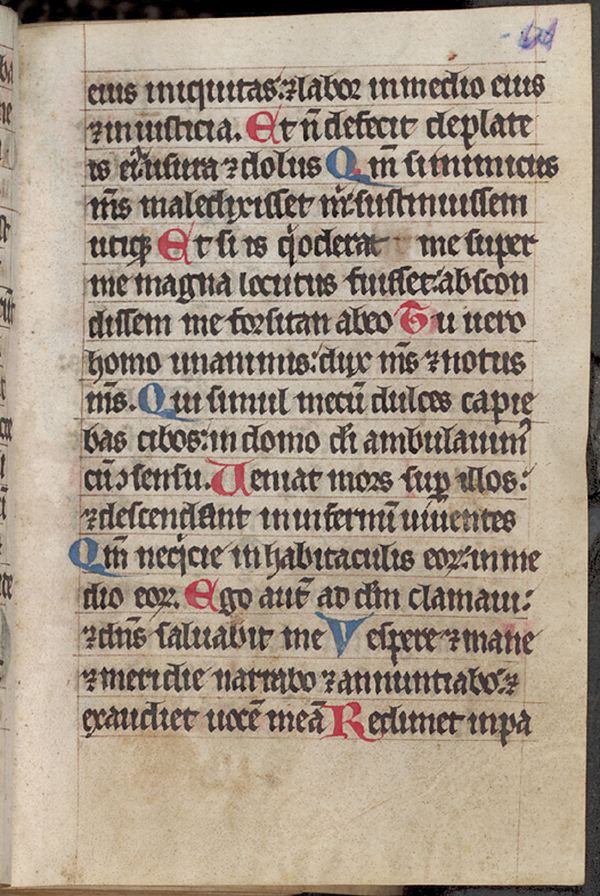 eius iniquitas: ⁊ labor in medio eius
⁊ iniusticia. Et ñ defecit de plate
is ei᷒: usura ⁊ dolus Qm̄ si inimicus
m̄s maledixisset m͛: sustinuissem
utiqꝫ Et si is q̇ oderat me super
me magna locutus fuisset: abscon
dissem me forsitan ab eo Tu uero
homo unanimis: dux m̄s ⁊ notus
m̄s. Qui simul mecū dulces capie
bas cibos: in domo dī ambulauim᷒
cū ɔsensu. Ueniat mors sup̱ illos:
⁊ descendant in infernū uiuentes
Qm̄ neq̇cie in habitaculis eoꝝ: in me
dio eoꝝ. Ego aut̄ ad dm̄ clamaui:
⁊ dn̄s saluabit me Vespere ⁊ mane
⁊ meridie narrabo ⁊ annuntiabo: ⁊
exaudiet uocē meā Redimet in pa